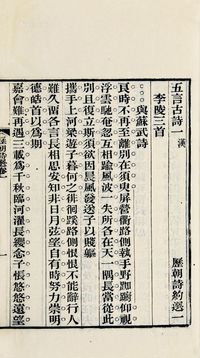 五言古詩一 漢 歷朝詩約選一
李陵三首
與蘇武詩
良時不再至離別在須臾屏營衢路側執手野踟躕仰視
浮雲馳奄忽互相踰風波一失所各在天一隅長當從此
別且復立斯須欲因晨風發送子以賤軀
攜手上河梁遊子暮何之徘徊蹊路側悢悢不能辭行人
難久留各言長相思安知非日月弦望自有時努力崇明
德皓首以為期
嘉會難再遇三載為千秋臨河濯長纓念子悵悠悠遠望